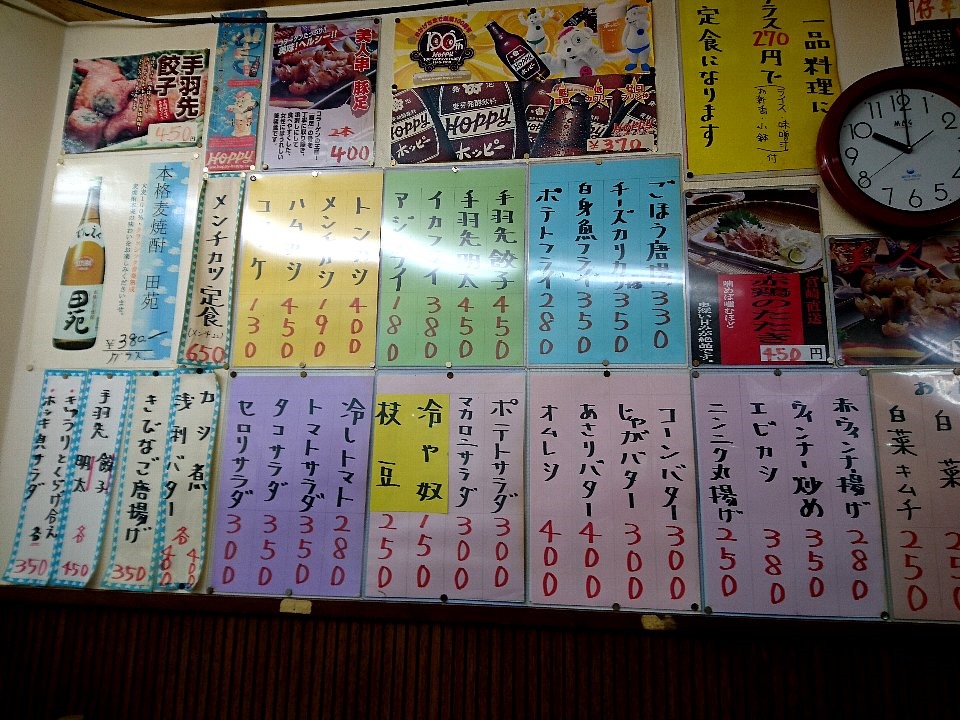 手羽先
餃子
450円
HOPPY
美人豚足
美味!ヘルシー!!
2本
400
100th
HOPPY
HOPPY
ホッピー
ホッピー
¥370
一品料理に
プラス270円で
定食になります
本格麦焼酎 田苑
田苑
¥380
グラス
メンチカツ定食
650
トンカツ 400
メンチカツ 190
ハムカツ 450
コロッケ 130
手羽先餃子 450
手羽先明太 450
イカフライ 380
アジフライ 180
ごぼう唐揚 330
チーズカリカリ揚 350
白身魚フライ 350
ポテトフライ 280
宮崎直送
赤鶏のたたき
噛めば噛むほど
450円
カシラ煮
浅利バター 各400
きびなご磨揚げ 350
手羽先 餃子
明太 各450
ホッキサラダ 各350
冷しトマト 280
トマトサラダ 350
タコサラダ 350
セロリサラダ 300
ポテトサラダ 300
マカロニサラダ 300
冷ややっこ 150
枝豆 250
コーンバター 300
じゃがバター 300
あさりバター 400
オムレツ 400
赤ウィンナー揚げ 280
ウィンナー炒め 350
エビカツ 380
ニンニク丸揚げ 250
白菜
白菜キムチ 250